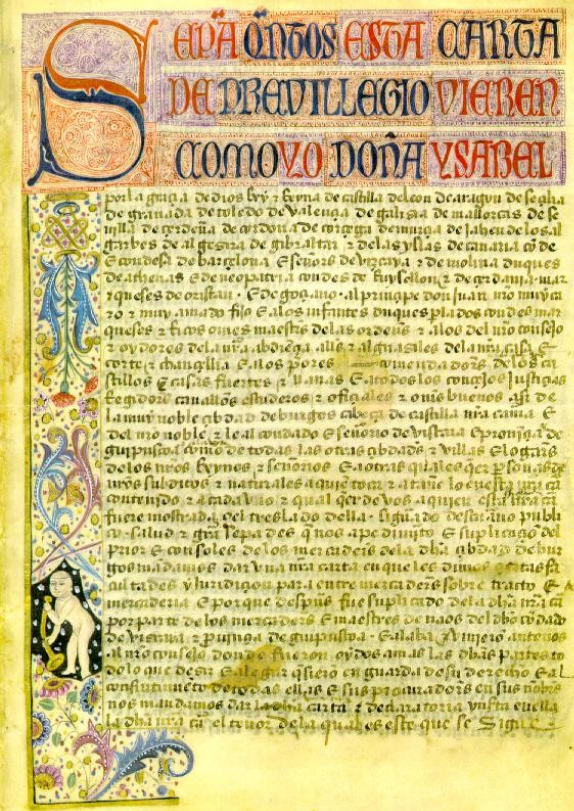 SEPĀ QÑTOS ESTA CARTA
DE PREVILLEGIO VIEREN
COMO YO DOÑA YSABEL
por la graçia de dios Rey τ Reyna de castilla de leon de aragon de seçilia
de granada de toledo de valençia de galisia de mallorcas de se
uilla de cerdeña de cordoua de corçega de murçia de jahen de los al
garbes de algesira de gibraltar τ de las yslas de canaria cõ de
E condesa de barçelona E señores de viscaya τ de molina duques
de athenas E de neopatria condes de Ruysellon τ de çerdania mar
τ queses de oristan E de goçiano al prinçipe don juan nro muy ca
ro τ muy amado fijo E a los infantes duques plados condes mar
queses τ Ricos omes maestres de las ordenes τ a los del nro consejo
τ oydores de la nra abdiençia alls τ alguasiles de la nra casa E
corte τ chançilleria E a los pores comendadors de los ca
stillos E casas fuertes τ llanas E a todos los conçejos justiçias
Regidores caualleros escuderos τ ofiçiales τ omes buenos asi de
la muy noble çibdad de burgos cabeça de castilla nra camara E
del nro noble τ leal condado E señorio de viscaia E prouinçia de
guipuscoa como de todas las otras çibdads τ villas E logars
de los nros Reynos τ señorios E a otras quales qer psonas de
nros subditos τ naturales a quien toca τ atañe lo en esta nra ca
contenido τ a cada vno τ qual qer de vos a quien esta nra ca
fuere mostrada o el treslado della signado de escriuano publi
co salud τ gra Sepades q nos a pedimyto E suplicaçion del
prior E consoles de los mercaders de la dha çibdad de bur
gos mandamos dar vna nra carta en que les dimos çiertas fa
cultades y juridiçion para entre mercaders sobre tracto E
mercaderia E porque despues fue suplicado de la dha nra ca
por parte de los mercaders E maestres de naos del dho condado
de viscaia τ puinçia de guipuscoa E alaba vinieron ante nos
al nro consejo donde fueron oydos amas las dhas partes to
do lo que desir E alegar quisierõ en guarda de su derecho E al
consentimiento de todas ellas E sus procuradors en sus nobres
nos mandamos dar la dha carta τ declaratoria ynserta en ella
la dha nra ca el tenor de la qual es este que se Sigue